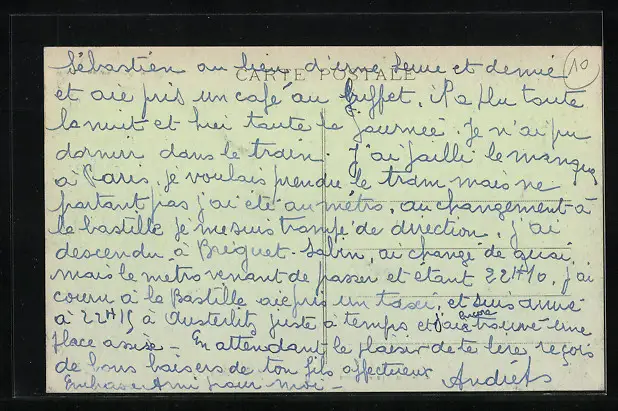 Sébastien au lieu d'une demie et demie
CARTE POSTALE
10
et aie pris un café au Buffet. il a plu toute
la nuit et hier toute la journée. Je n'ai pu
dormir dans le train. J'ai failli le manquer
à Paris, je voulais prendre le tram mais ne
partant pas j'ai été au métro, au changement à
la bastille je me suis trompé de direction, j'ai
descendu à Breguet-Sabin, ai changé de quai,
mais le metro venant de passer et etant 22H10, j'ai
couru à la Bastille aie pris un taxi, et suis arrivé
à 22H15 à Austerlitz juste à temps et j'aie encore trouvé une
place assise - En attendant le plaisir de te lire, reçois
de bons baisers de ton fils affectueux
Embrasse Ami pour moi - André